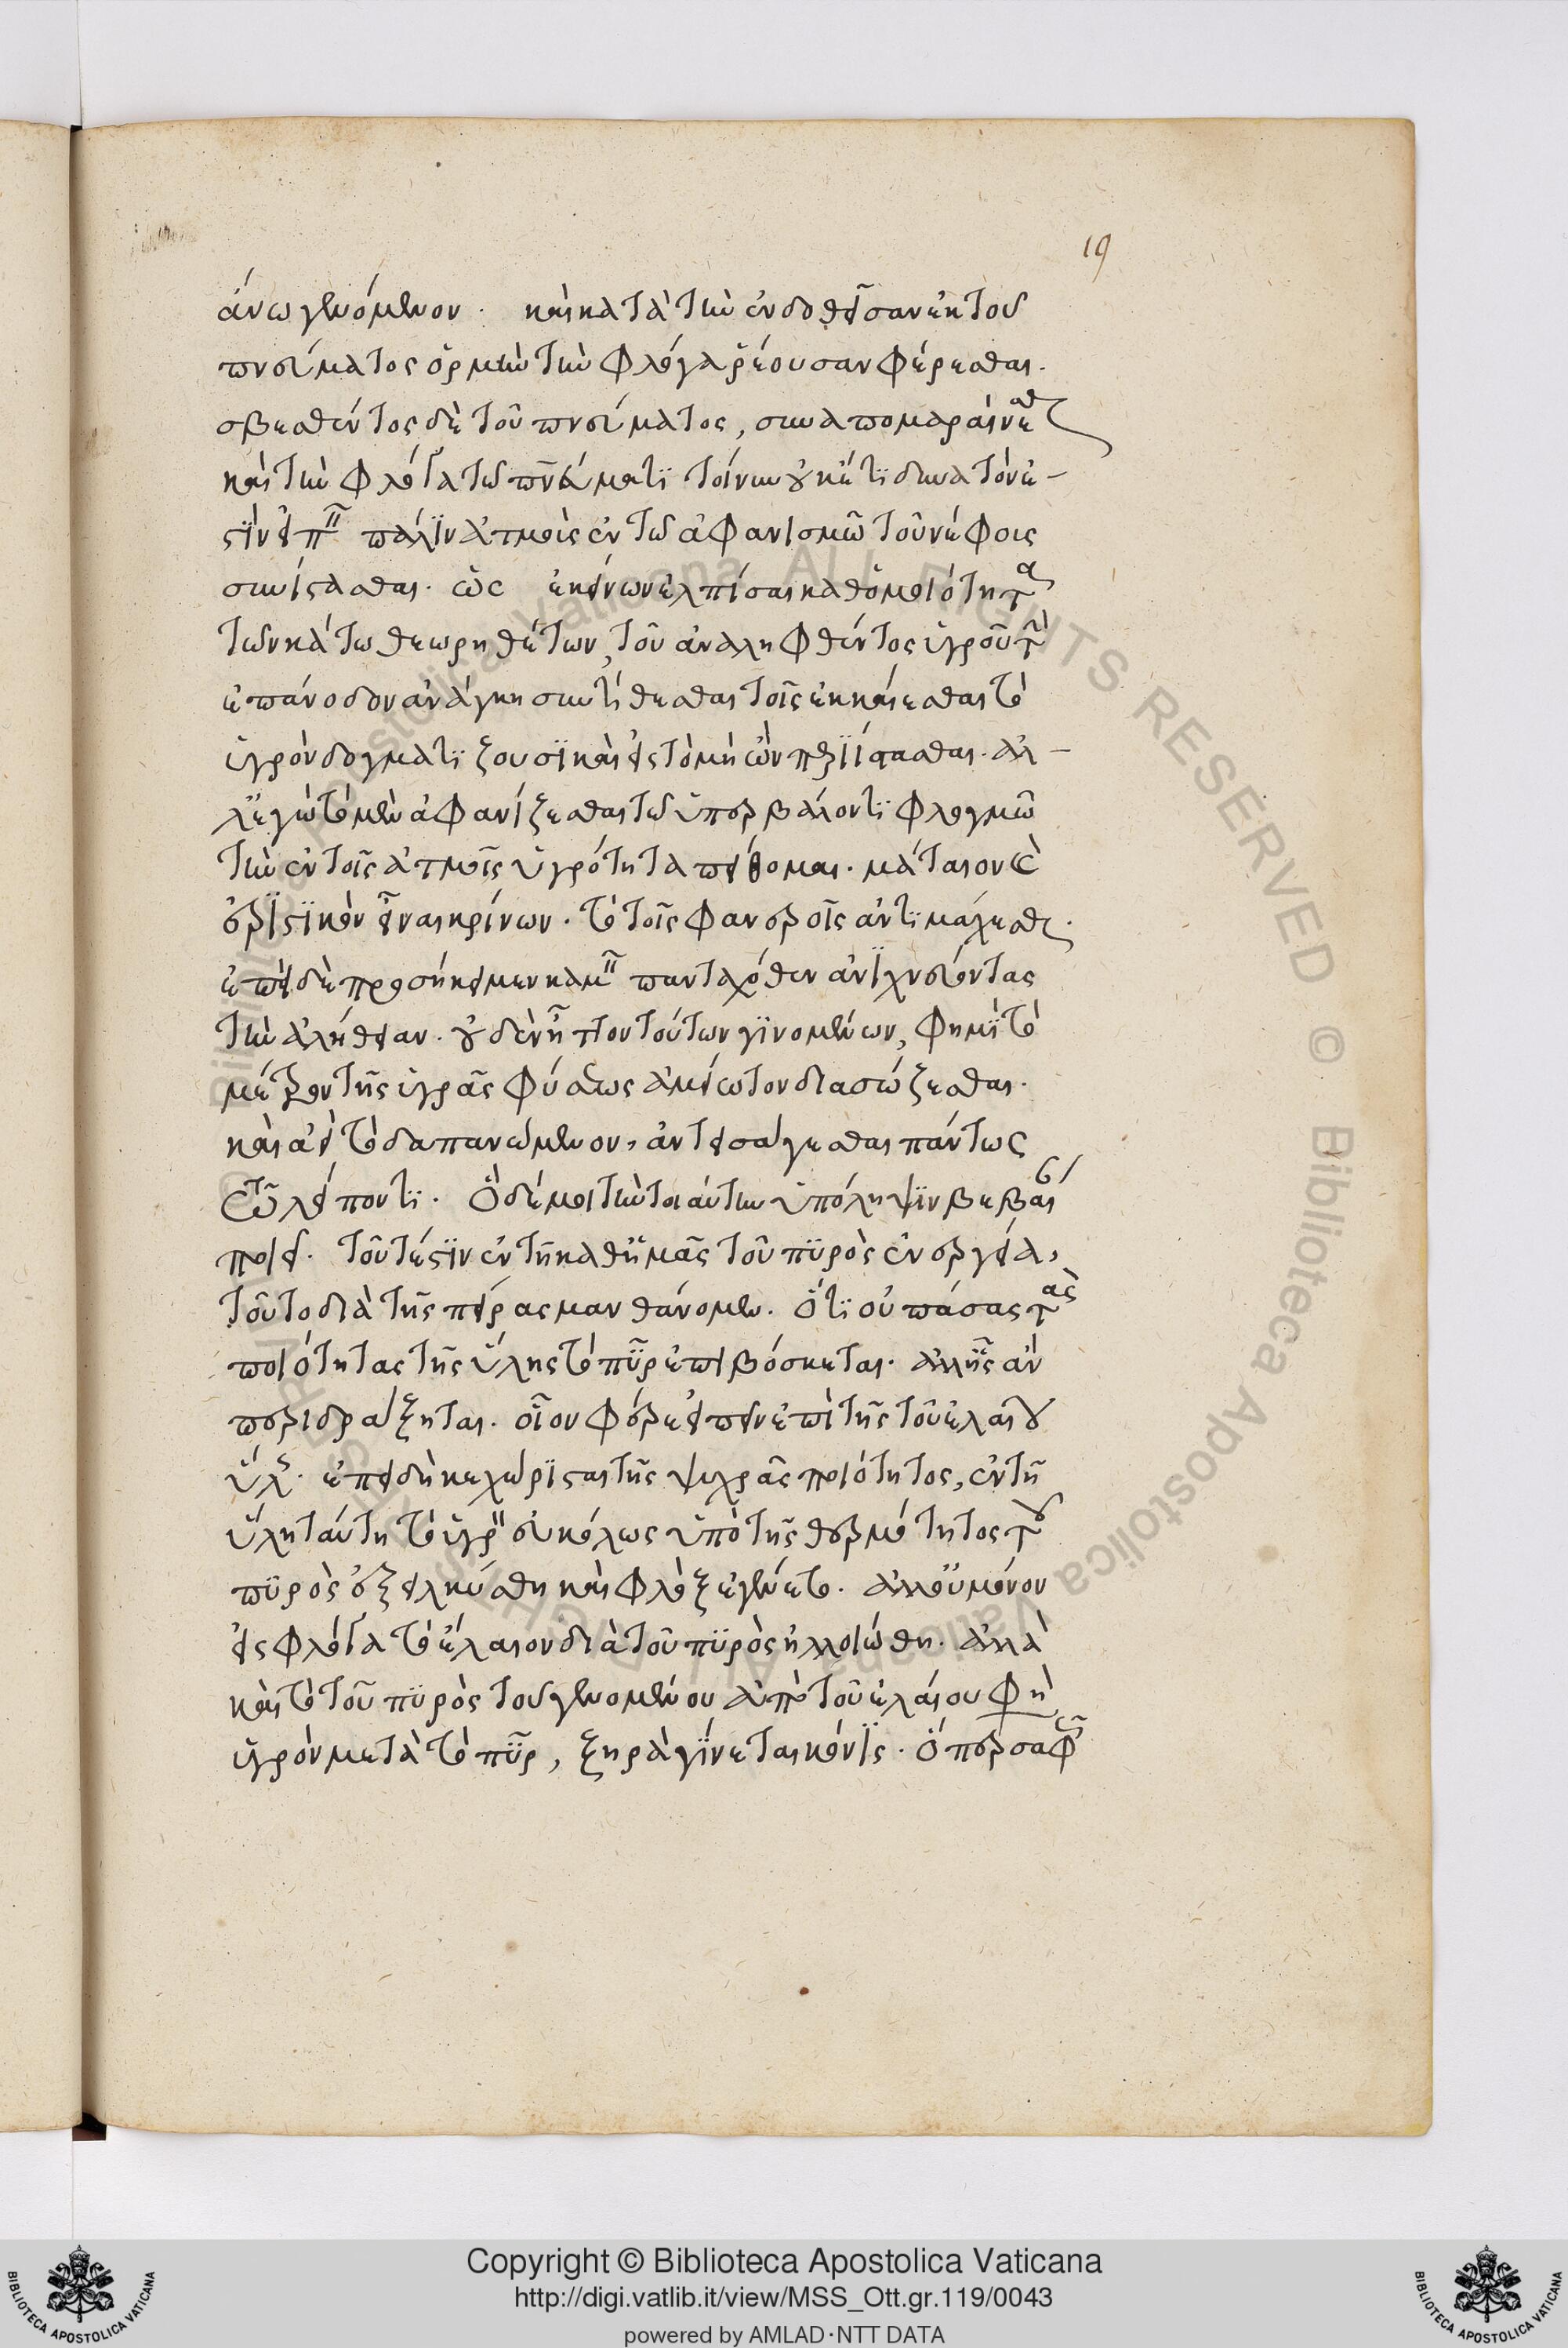 19
ἄνω γενόμενον. καὶ κατὰ τὴν ἐνδοθεῖσαν ἐκ τοῦ
πνεύματος ὁρμὴν τὴν φλόγα ῥέουσαν φέρεσθαι.
σβεσθέντος δὲ τοῦ πνεύματος, συναπομαραίνεσθαι
καὶ τὴν φλόγα τῶ πνεύματι τοίνυν οὐκέτι δυνατόν ἐ-
στὶν πάλιν ἀτμοῖς ἐν τῶ ἀφανισμῶ τοῦ νέφους
συνίστασθαι. ὡς ἐκείνων ἐλπίσαι καθ ὁμοιότητα
τῶν κάτω θεωρηθέτων, τοῦ ἀναληφθέντος ὑγροῦ τὴν
ἐπάνοδον ἀνάγκη συντίθεσθαι τοῖς ἐκκαίεσθαι τὸ
ὑγρὸν δογματίζουσι καὶ εἰς τὸ μὴ ὂν περιίστασθαι. ἀλ-
λ ἐγὼ τὸ μὲν ἀφανίζεσθαι τῶ ὑπερβάλοντι φλογμῶ
τὴν ἐν τοῖς ἀτμοῖς ὑγρότητα πείθομαι. μάταιον καὶ
ἐριστικὸν εἶναι κρίνων. τὸ τοῖς φανεροῖς ἀντιμάχεσθαι.
ἐπεὶ δὲ προσήκει μὲν πανταχόθεν ἀνιχνεύοντας
τὴν ἀλήθειαν. οὐδὲν ἧττον τούτων γινομένων, φημὶ τὸ
μέτρον τῆς ὑγρᾶς φύσεως ἀμείωτον διασώζεσθαι.
καὶ ἀεὶ τὸ δαπανώμενον, ἀντεισάγεσθαι πάντως
τῶ λείποντι. ὃ δέ μοι τὴν τοιαύτην ὑπόληψιν βεβαίαν
ποιεῖ. τοῦτέστιν ἐν τῆ καθ ἡμᾶς τοῦ πυρὸς ἐνεργεία,
τοῦτο διὰ τῆς πείρας μανθάνομεν. ὅτι οὐ πάσας τὰς
ποιότητας τῆς ὕλης τὸ πῦρ ἐπιβόσκεται. ἀλλ ἧς ἂν
περιδράξηται. οἷον φέρε εἰπεῖν ἐπὶ τῆς τοῦ ἐλαίου
ὕλης. ἐπειδὴ κεχώρισται τῆς ψυχρᾶς ποιότητος, ἐν τῆ
ὕλη ταύτη τὸ ὑγρὸν εὐκόλως ὑπὸ τῆς θερμότητος τοῦ
πυρὸς ἐξειλκύσθη καὶ φλὸξ ἐγένετο. ἀλλ οὐ μόνον
εἰς φλόγα τὸ ἔλαιον διὰ τοῦ πυρὸς ἠλλοιώθη. ἀλλὰ
καὶ τὸ τοῦ πυρὸς τοῦ γενομένου ἀπὸ τοῦ ἐλαίου φη
ὑγρὸν μετὰ τὸ πῦρ, ξηρὰ γίνεται κόνις. ὅπερ σαφῶς
Copyright © Biblioteca Apostolica Vaticana
http://digi.vatlib.it/view/MSS_Ott.gr.119/0043
powered by AMLAD·NTT DATA